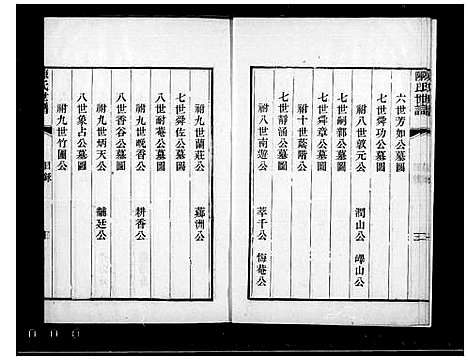 陳氏世譜
六世芳如公墓圖
七世舜功公墓圖
祔八世敦元公 潤山公 嶧山公
七世嗣鄒公墓圖
七世舜章公墓圖
祔十世蔭階公
七世靜涵公墓圖
祔八世南遊公 莘千公 悔菴公
祔九世蘭莊公 鄒洲公
七世舜佐公墓圖
八世耐菴公墓圖
祔九世晚香公 耕香公
八世香谷公墓圖
祔九世炳天公 黼廷公
八世象占公墓圖
祔九世竹圃公
陳氏世譜
目錄